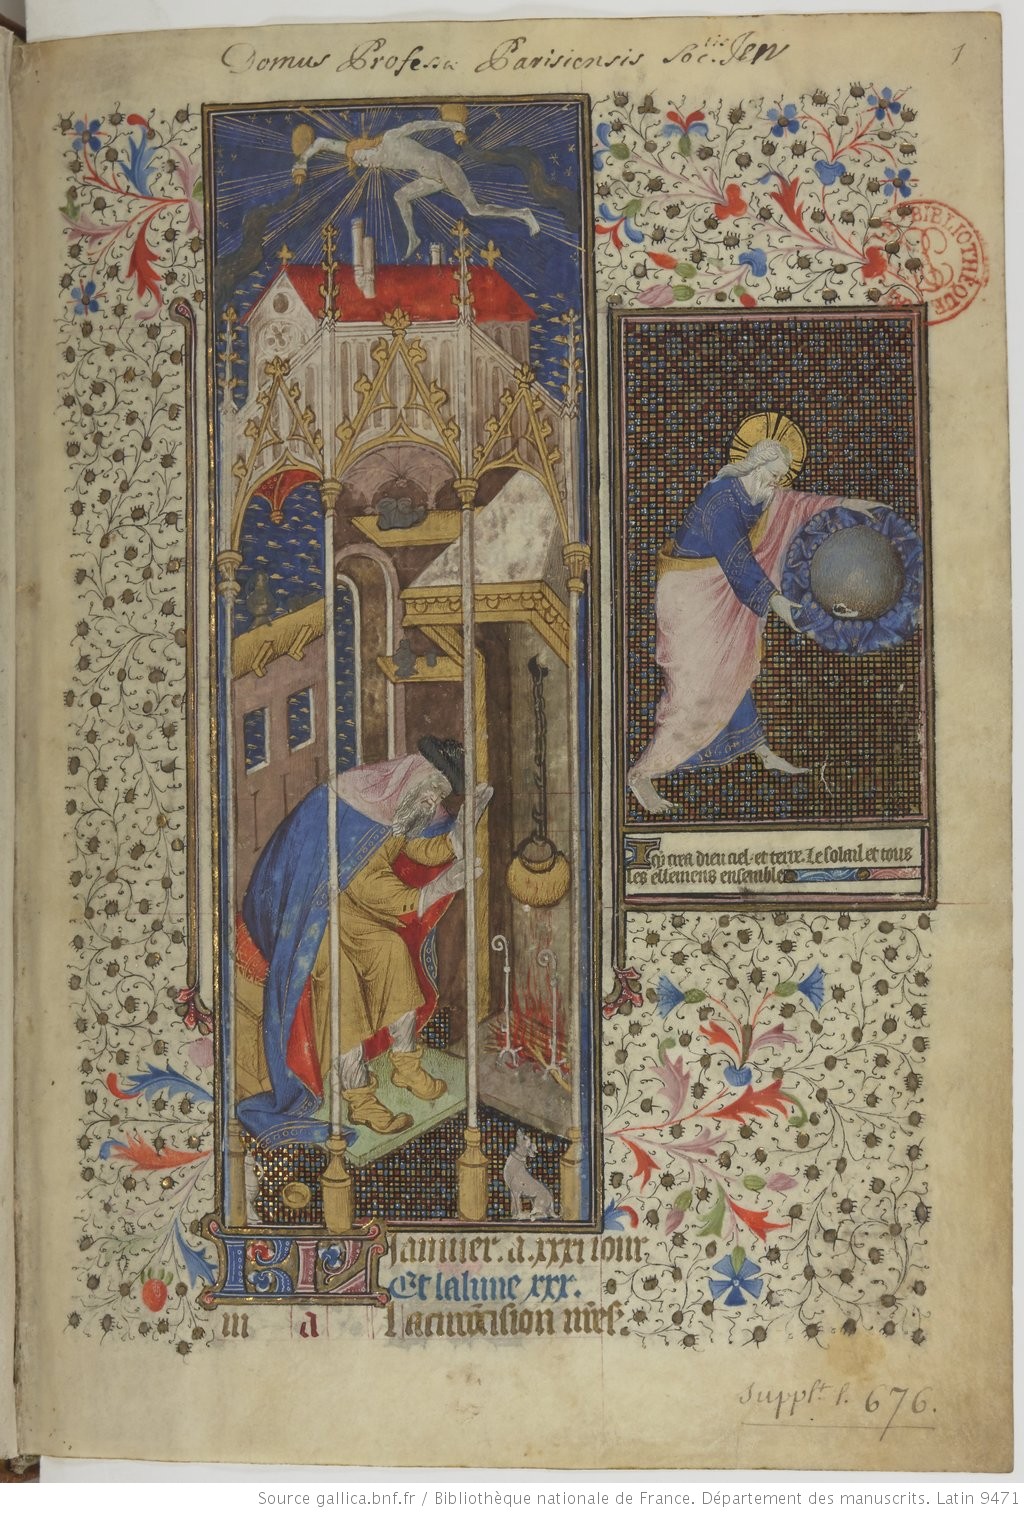 Domus Professæ Parisiensis Soc.tis Jesu
1
BIBLIOTHE
Icy crea dieu ciel et terre. Le solail et tous
les ellemens ensemble
KL Januier. a. xxxi iour.
Et la lune xxx.
iii a La circũcision nr̃e sr̃.
Suppl.t l. 676.
Source gallica.bnf.fr / Bibliothèque nationale de France. Département des manuscrits. Latin 9471